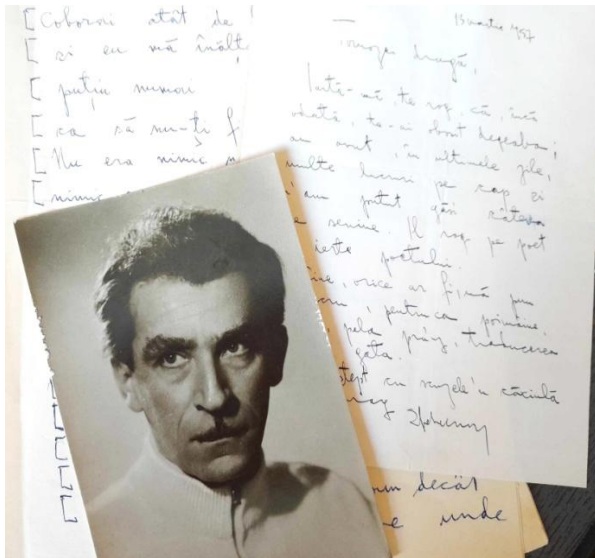 Coborni atât de
și eu mă înălț
puțin numai
ca să nu-ți f
Nu era nimic n
nimic
15 martie 1957
dragă,
Iartă-mă, te rog, că, încă
odată, te-ai obosit degeaba;
am avut, în ultimele zile,
multe lucruri pe cap și
am putut găsi câteva
e senine. Il rog pe poet
ierte poetului.
orice ar fi, mă pun
pentru ca poimâine,
pela prânz, traducerea
gata.
tept cu scuzele'n căciulă
decât
e unde